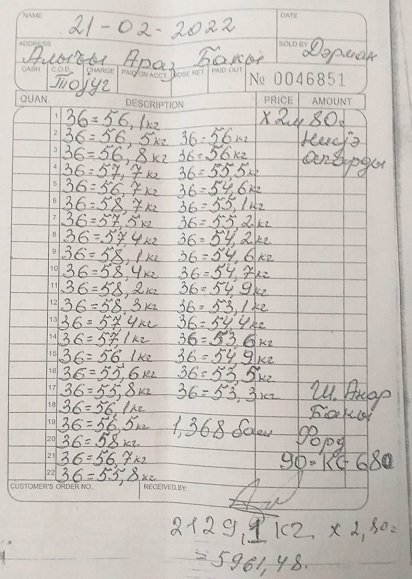 NAME 21-02-2022 DATE
ADDRESS Алыҹы Араз Бакы SOLD BY Дәрман
CASH C.O.D. CHARGE PAID ON ACCT. MDSE RET PAID OUT № 0046851
Тојуг
QUAN. DESCRIPTION PRICE AMOUNT
1 36=56,1кг x 2м 80г
2 36=56,5кг 36=56кг Нисјә
3 36=56,8кг 36=56кг апарды
4 36=57,7кг 36=55,5кг
5 36=56,7кг 36=54,6кг
6 36=58,7кг 36=55,1кг
7 36=57,5кг 36=55,2кг
8 36=57,4кг 36=54,2кг
9 36=58,1кг 36=54,6кг
10 36=58,4кг 36=54,7кг
11 36=58,2кг 36=54,9кг
12 36=58,3кг 36=53,1кг
13 36=57,4кг 36=54,4кг
14 36=57,1кг 36=53,6кг
15 36=56,1кг 36=54,9кг
16 36=55,6кг 36=53,5кг
17 36=55,8кг 36=53,3кг Ш. Анар
18 36=56,1кг Бакы
19 36=56,5кг 1,368 баш Форд
20 36=58кг
21 36=56,7кг 90-КС-680
22 36=55,8кг
CUSTOMER'S ORDER NO. RECEIVED BY:
2129,1 кг x 2,80г
=5961,48.